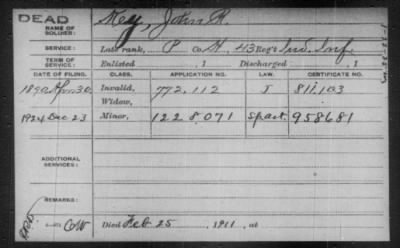 DEAD
NAME OF SOLDIER: Key, John R.
SERVICE: Late rank, P Co. H, 43 Reg't Ind. Inf.
TERM OF SERVICE: Enlisted , 1 Discharged , 1
DATE OF FILING. CLASS. APPLICATION NO. LAW. CERTIFICATE NO.
1890 Invalid, 772.112 J 811,103
Widow,
1924 Dec 23 Minor, 1228,071 958681
ADDITIONAL SERVICES:
REMARKS:
COW Died Feb 25 1911, at